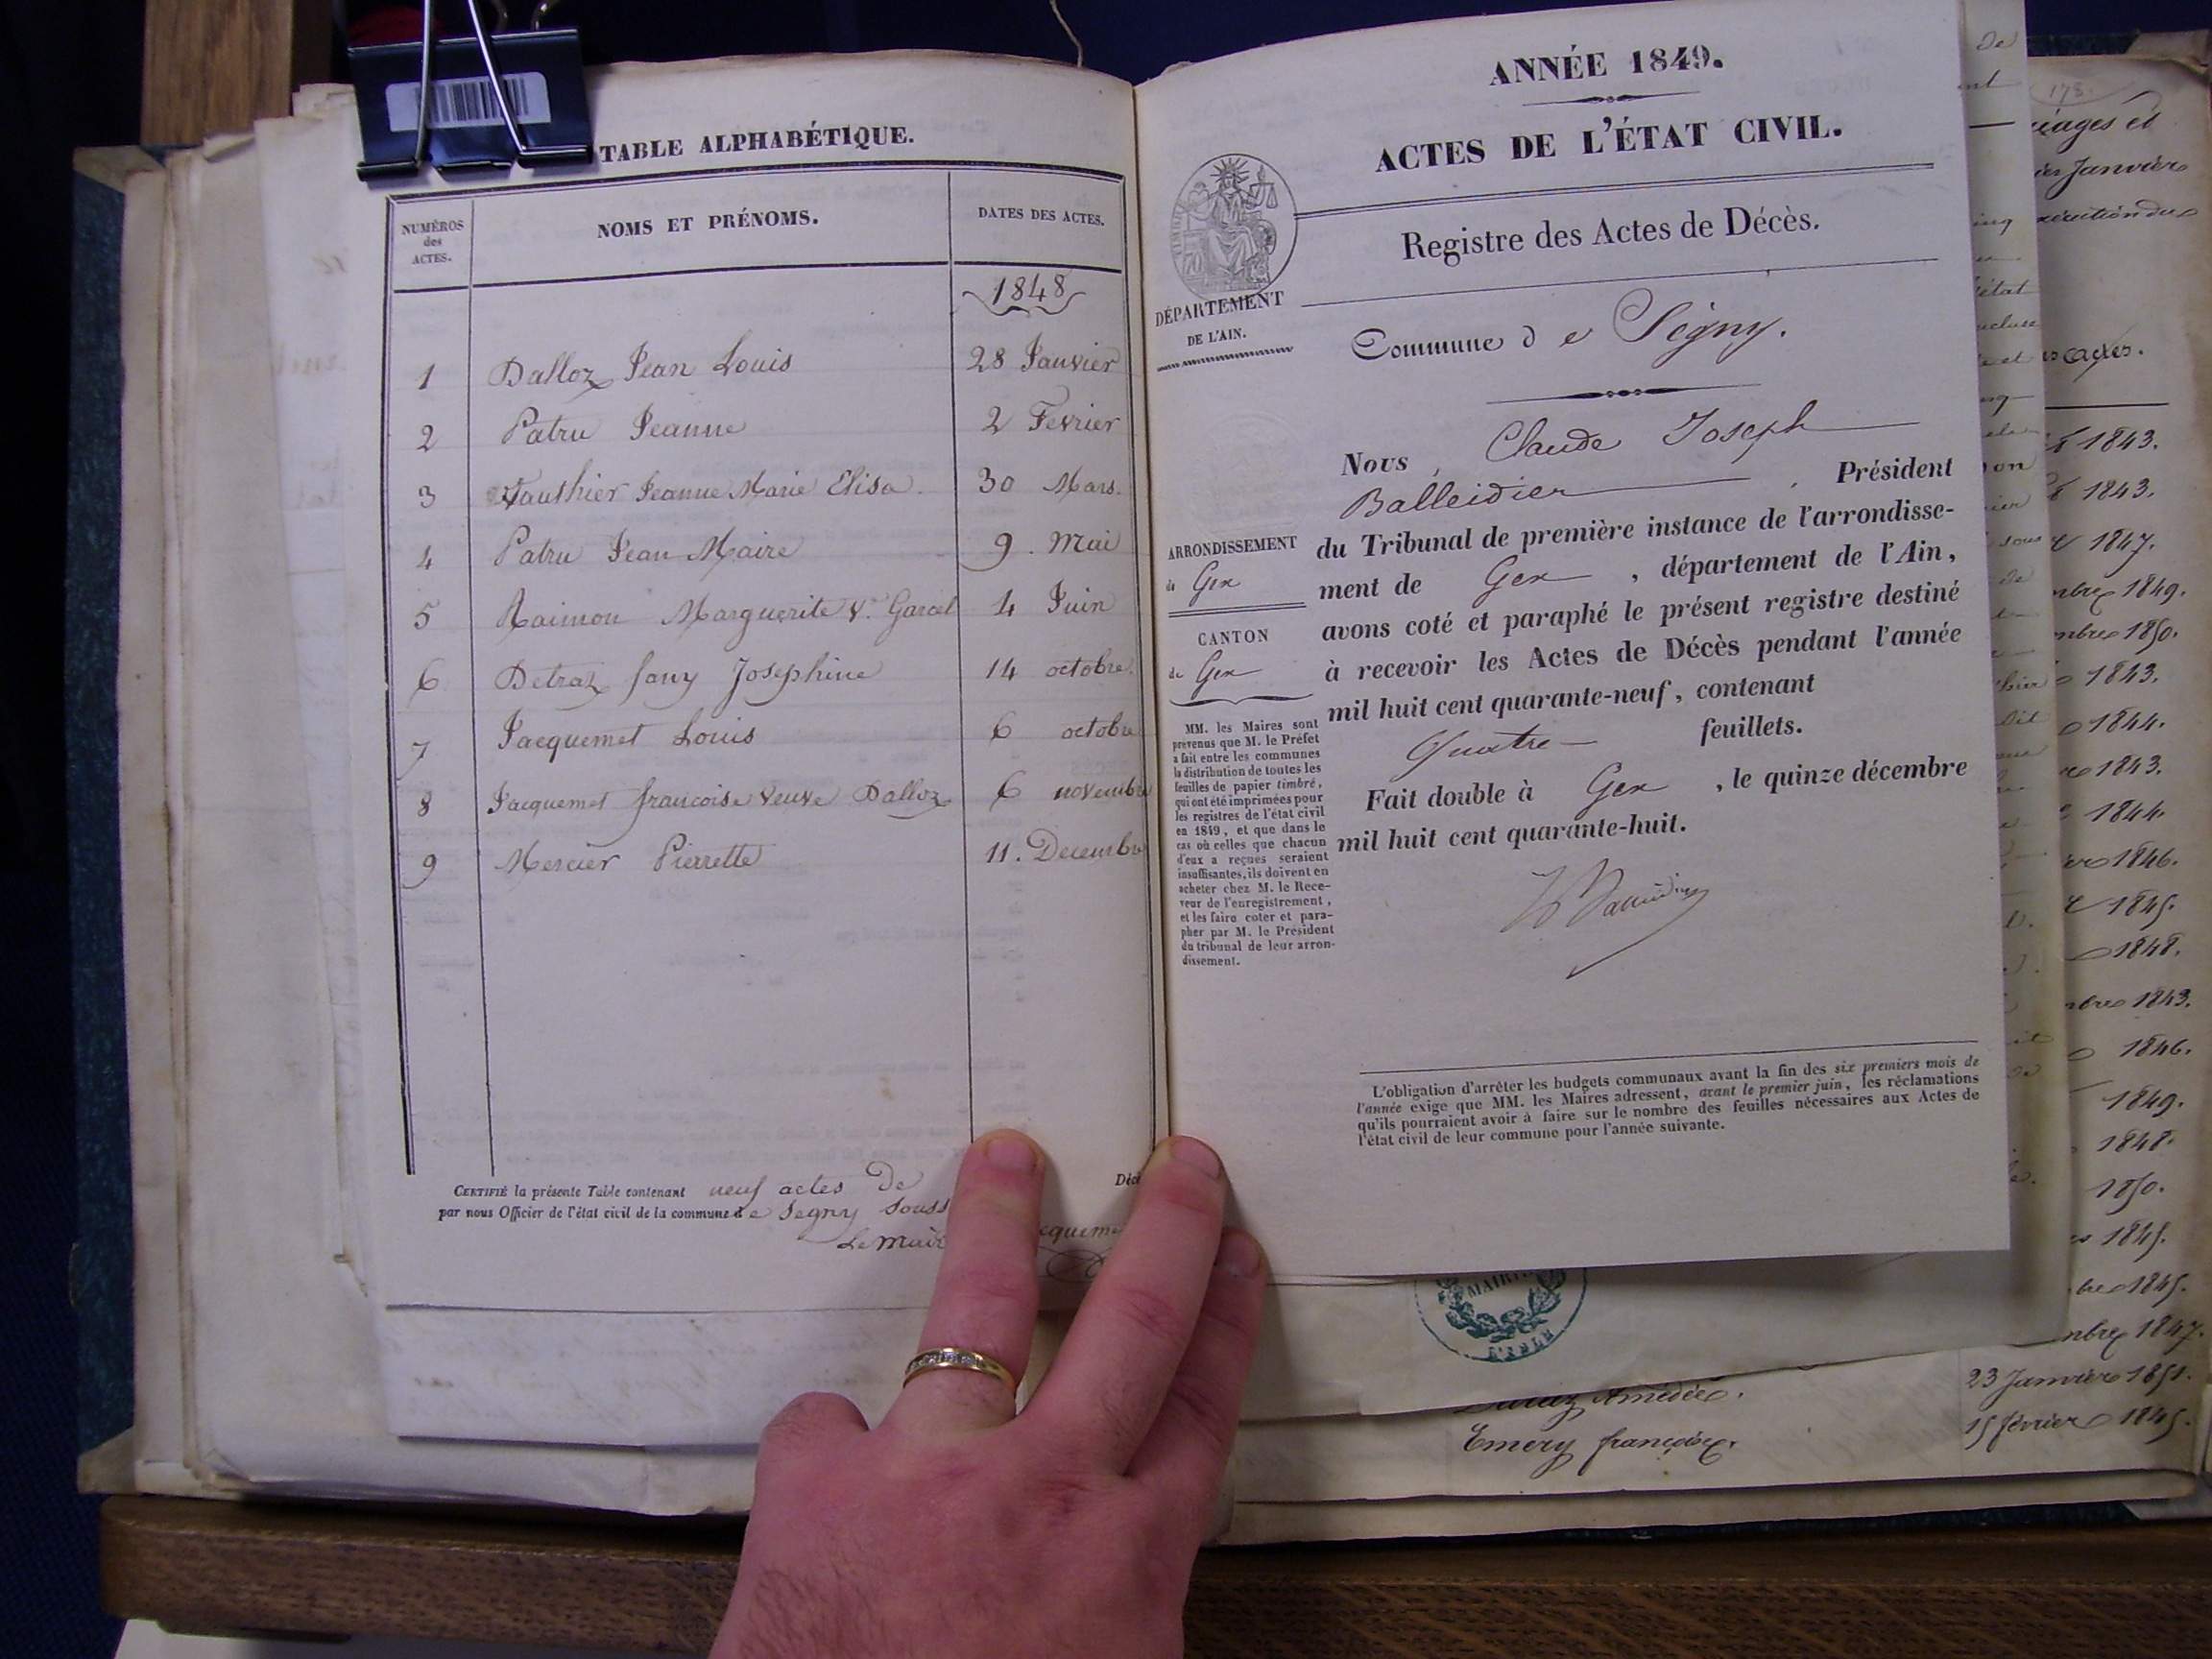 TABLE ALPHABÉTIQUE.
NUMÉROS des ACTES.
NOMS ET PRÉNOMS.
DATES DES ACTES.
1848
1 Dalloz Jean Louis 28 Janvier
2 Patru Jeanne 2 Fevrier
3 Gauthier Jeanne Marie Elisa. 30 Mars.
4 Patru Jean Maire 9. Mai
5 Raimon Marguerite Ve. Garcel 4 Juin
6 Detraz fany Josephine 14 octobre.
7 Jacquemet Louis 6 octobre
8 Jacquemet francoise veuve Dalloz 6 novembre
9 Mercier Pierrette 11. Decembre
CERTIFIÉ la présente Table contenant neuf actes De
par nous Officier de l'état civil de la commune de Segny
Le Mair
ANNÉE 1849.
ACTES DE L'ÉTAT CIVIL.
Registre des Actes de Décès.
DÉPARTEMENT
DE L'AIN.
Commune de Segny.
Nous, Claude Joseph
Balleidier, Président
du Tribunal de première instance de l'arrondisse-
ment de Gex, département de l'Ain,
avons coté et paraphé le présent registre destiné
à recevoir les Actes de Décès pendant l'année
mil huit cent quarante-neuf, contenant
Quatre feuillets.
Fait double à Gex, le quinze décembre
mil huit cent quarante-huit.
ARRONDISSEMENT
de Gex
CANTON
de Gex
MM. les Maires sont
prévenus que M. le Préfet
a fait entre les communes
la distribution de toutes les
feuilles de papier timbré,
qui ont été imprimées pour
les registres de l'état civil
en 1849, et que dans le
cas où celles que chacun
d'eux a reçues seraient
insuffisantes, ils doivent en
acheter chez M. le Rece-
veur de l'enregistrement,
et les faire coter et para-
pher par M. le Président
du tribunal de leur arron-
dissement.
L'obligation d'arrêter les budgets communaux avant la fin des six premiers mois de
l'année exige que MM. les Maires adressent, avant le premier juin, les réclamations
qu'ils pourraient avoir à faire sur le nombre des feuilles nécessaires aux Actes de
l'état civil de leur commune pour l'année suivante.
178.
1843.
1843.
1847.
1849.
1850.
1843.
1844.
1843.
1844.
1846.
1845.
1848.
1843.
1846.
1849.
1848.
1850.
1845.
1845.
1847.
23 Janvier 1851.
Emery françoise. 15 février 1845.